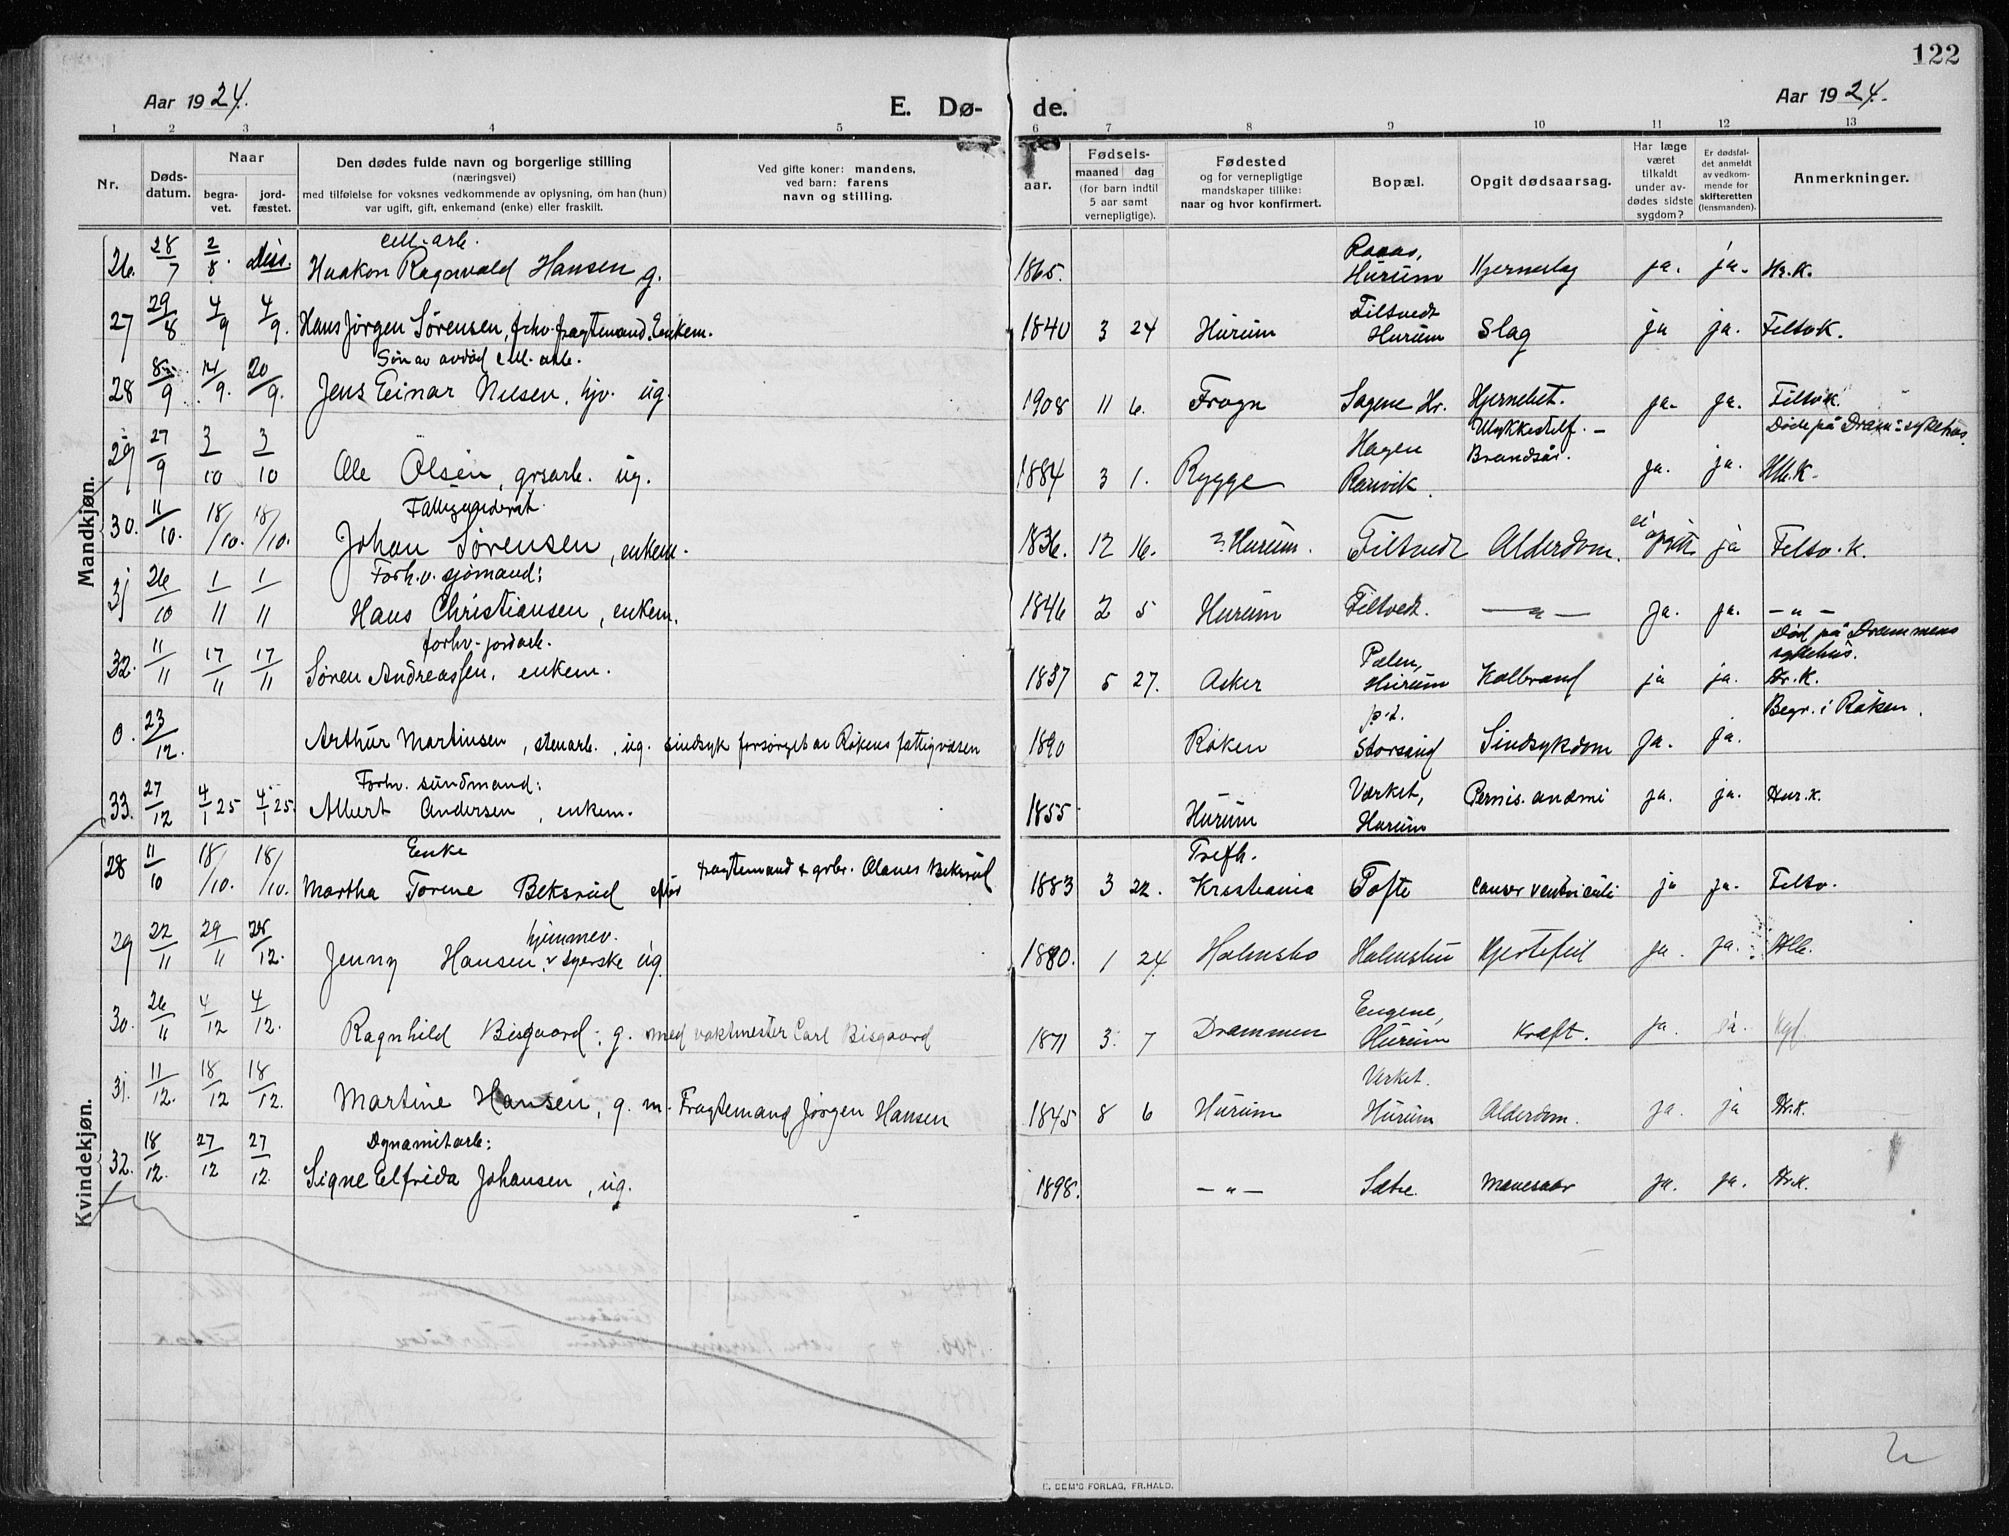 122
Aar 1924.
E. Dø- de.
Aar 1924.
1 2 3 4 5 6 7 8 9 10 11 12 13
Nr.
Døds-
datum.
Naar
begra-
vet.
jord-
fæstet.
Den dødes fulde navn og borgerlige stilling
(næringsvei)
med tilføielse for voksnes vedkommende av oplysning, om han (hun)
var ugift, gift, enkemand (enke) eller fraskilt.
Ved gifte koner: mandens,
ved barn: farens
navn og stilling.
aar.
Fødsels-
maaned dag
(for barn indtil
5 aar samt
vernepligtige).
Fødested
og for vernepligtige
mandskaper tillike:
naar og hvor konfirmert.
Bopæl.
Opgit dødsaarsag.
Har læge
været
tilkaldt
under av-
dødes sidste
sygdom?
Er dødsfal-
det anmeldt
av vedkom-
mende for
skifteretten
(lensmanden).
Anmerkninger.
Mandkjøn.
cell-arb.
26. 28/7 2/8. Diss. Haakon Ragnvald Hansen g. 1865. Hurum Hjerneslag ja. ja. Hr.K.
Filtvedt
27 29/8 4/9 4/9. Hans Jørgen Sørensen, fhv. fragtemand. Enkem. 1840 3 24 Hurum Hurum Slag ja ja. Filtv.K.
Søn av avdød cell. arb.
28 8/9 14/9. 20/9. Jens Einar Nilsen, hjv. ug. 1908 11 6. Frogn Sagene Hr. Hjernebet. ja. ja. Filtv.K.
Ulykkestilf. - Døde på Dram: sykehus.
29 27/9 3/10 3/10 Ole Olsen, grsarb. ug. 1884 3 1. Rygge Hagen Rørvik. Brandsår. ja. ja. Hlb.K.
Fattigunderst.
30. 11/10. 18/10. 18/10. Johan Sørensen, enkem. 1836. 12 16. Hurum. Filtvedt Alderdom. ei opgitt ja Filtv.K.
Forh.v. sjømand:
31 26/10 1/11 1/11 Hans Christiansen, enkem. 1846 2 5 Hurum Filtvedt. — " — ja. ja. — " —
forhv. jordarb. Død på Drammens sykehus.
32. 11/11 17/11 17/11 Søren Andreassen, enkem. 1837 5 27. Asker Hurum Koldbrand ja ja. Hr.K.
Begr. i Røken.
0. 23/12. Arthur Martinsen, stenarb., ug. sindsyk forsørget av Røkens fattigvæsen 1890 Røken p.t. Storsand Sindsykdom ja. ja.
Forhv. sundmand:
33. 27/12 4/1 25 4/1 25. Albert Andersen, enkem. 1855 Hurum Værket, Hurum Pernis. anæmi ja. ja. Hur.K.
Kvindekjøn.
Enke
28 11/10 18/10. 18/10. Martha Torene Beksrud efter fragtemand & grbr. Olaves Beksrud 1883 3 22. Trefh. Kristiania Tofte Cancer ventriculi ja ja. Filtv.
hjemmev.
29 22/11 29/11 28/12. Jenny Hansen, v syerske ug. 1880. 1 24 Holmsbo Holmsbu Hjertefeil ja. ja. Hlb.
30. 26/11 4/12 4/12. Ragnhild Bisgaard; g. med vaktmester Carl Bisgaard 1871 3. 7 Drammen Engene, Hurum Kræft. ja. ja. Kgf.
31. 11/12. 18/12 18/12. Martine Hansen, g. m. Fragtemand Jørgen Hansen 1845 8 6 Hurum Verket. Hurum Alderdom. ja. ja Hr.K.
Dynamitarb:
32. 18/12. 27/12 27/12. Signe Elfrida Johansen, ug. 1898. — " — Sætre Mavesaar ja. ja. Hr.K.
E. SEM'S FORLAG, FR.HALD.